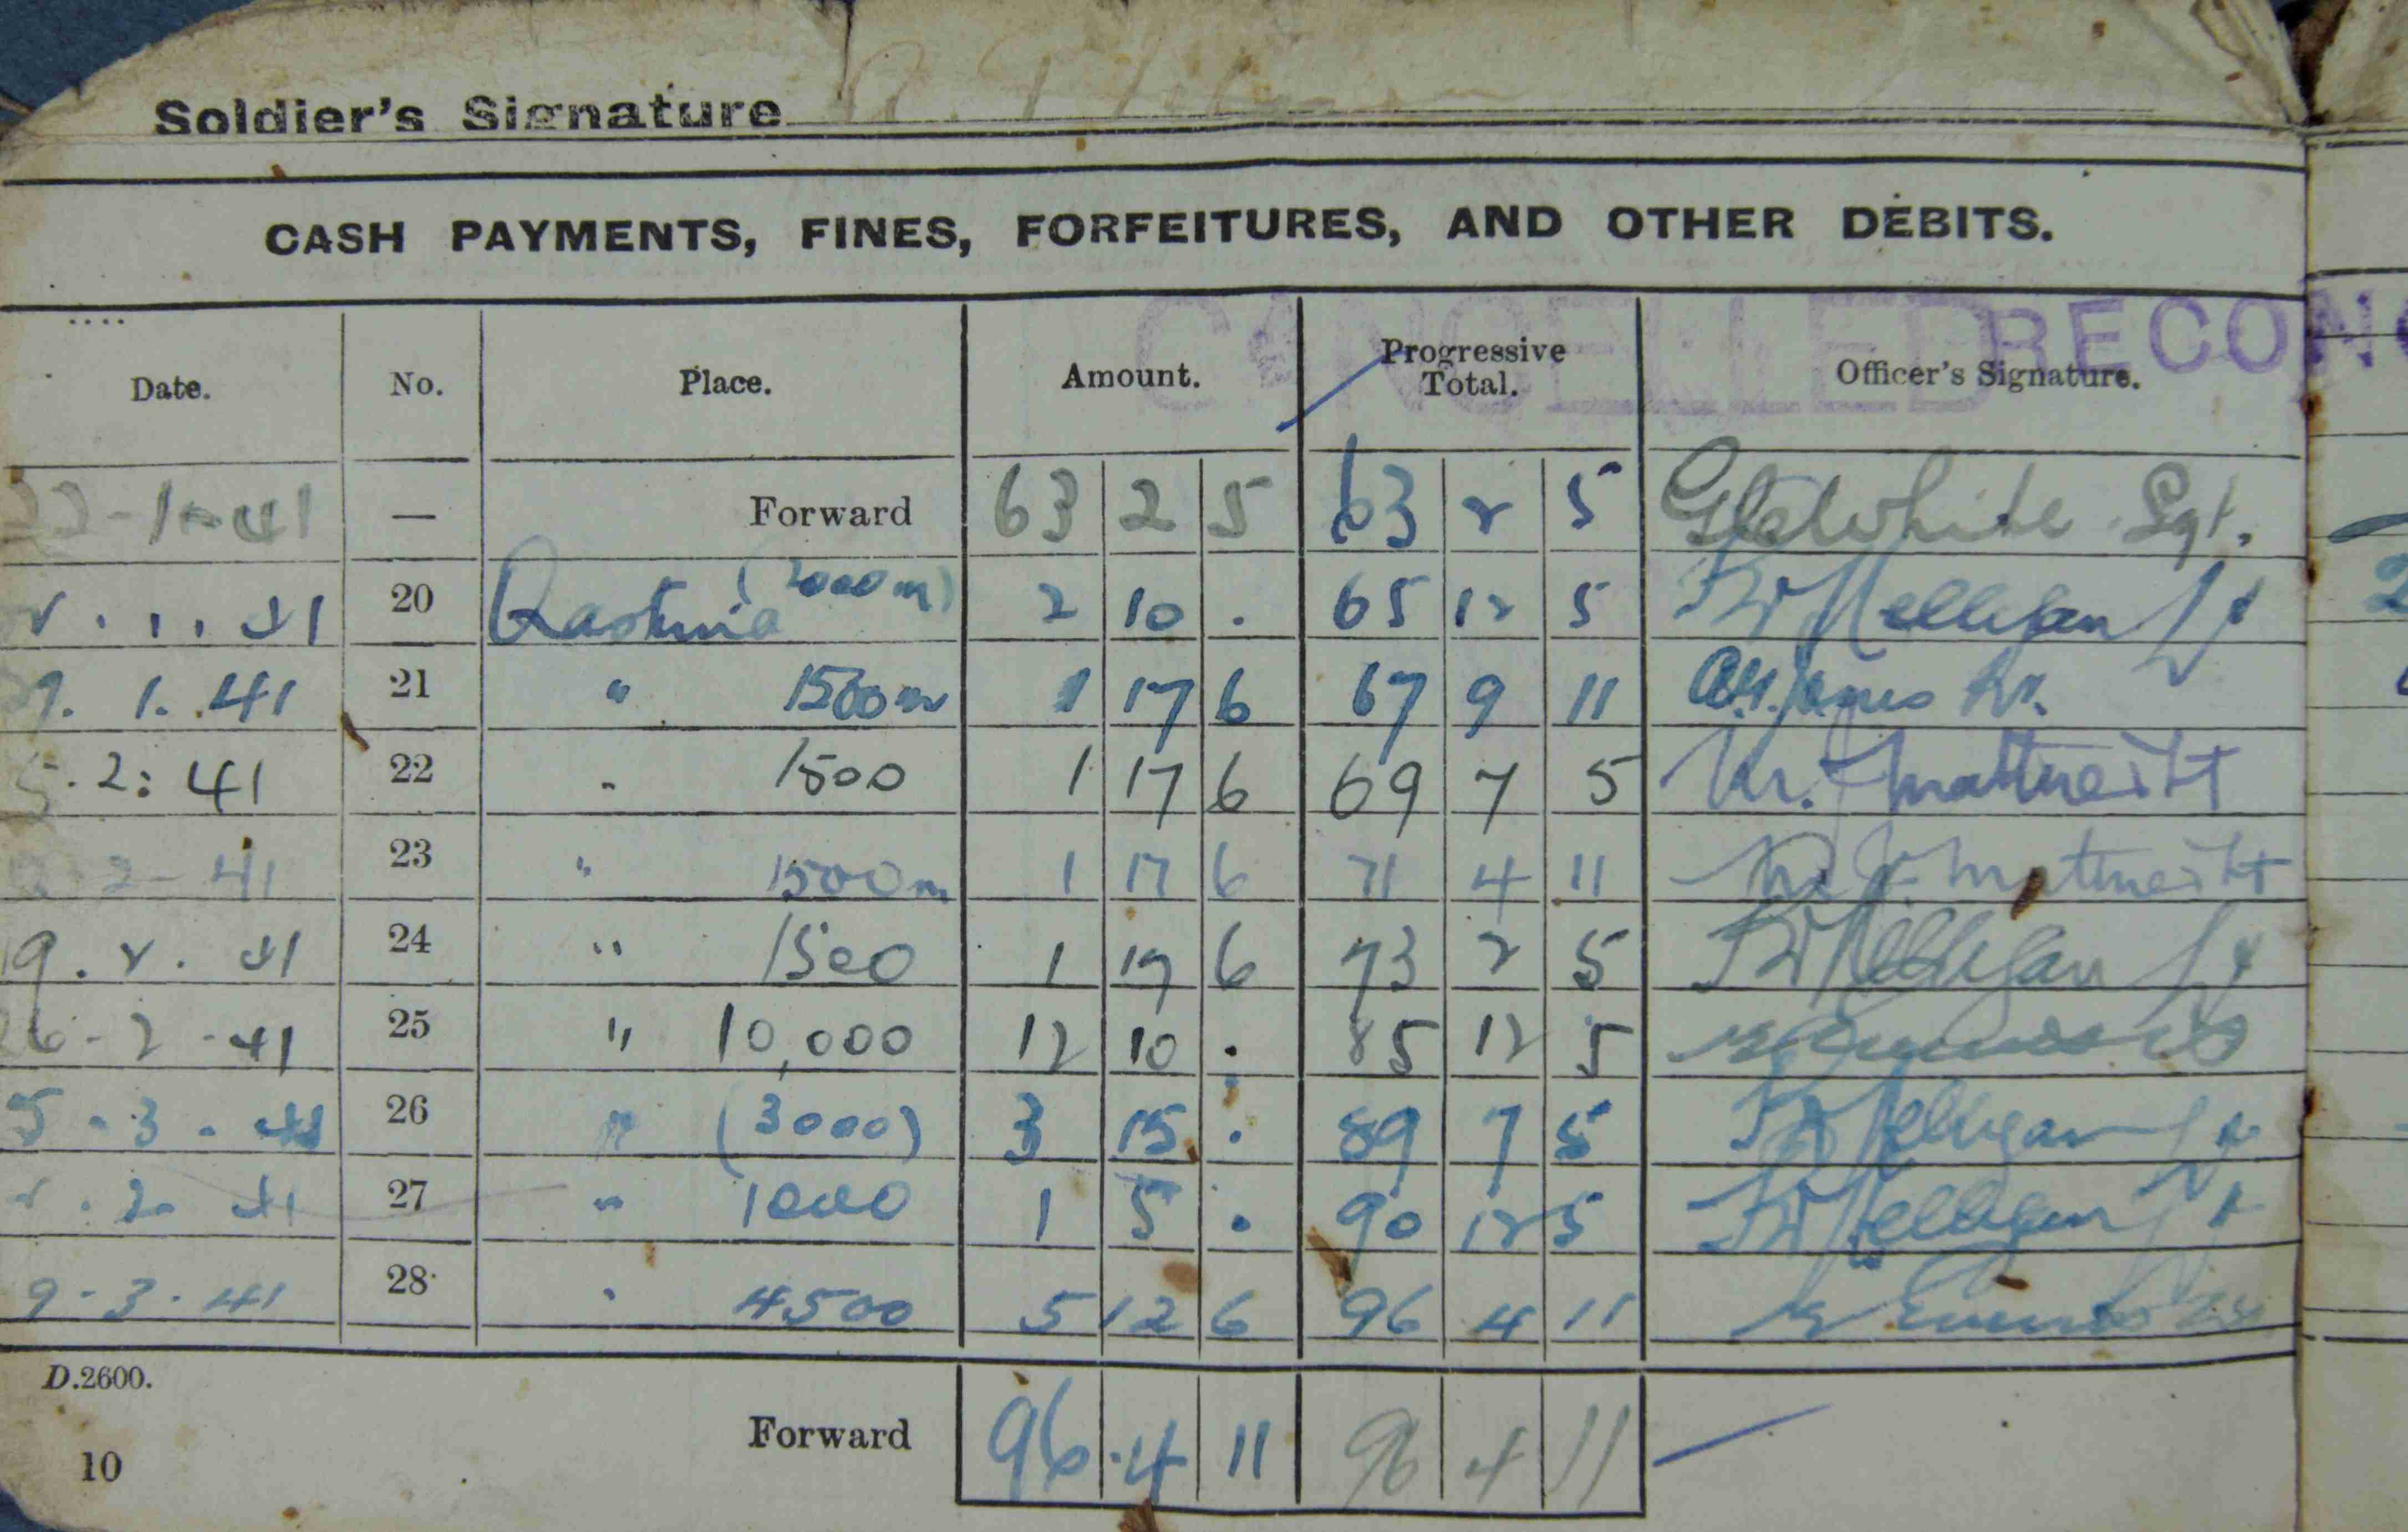 Soldier's Signature
CASH PAYMENTS, FINES, FORFEITURES, AND OTHER DEBITS.
CANCELLED RECON
Date. No. Place. Amount. Progressive Total. Officer's Signature.
22-1-41 — Forward 63 2 5 63 2 5 White Sgt.
1. 41 20 Qastina (2000 m) 2 10 . 65 12 5 Lt
9. 1. 41 21 " 1500 m 1 17 6 67 9 11 Jones Lt.
5. 2: 41 22 " 1500 1 17 6 69 7 5 Lt
2 - 41 23 " 1500 m 1 17 6 71 4 11 Lt
19. 2. 41 24 " 1500 1 17 6 73 2 5 Lt
26 - 2 - 41 25 " 10,000 12 10 . 85 12 5
5 - 3 - 41 26 " (3000) 3 15 . 89 7 5 Lt
41 27 " 1000 1 5 . 90 12 5 Lt
9 - 3 - 41 28 " 4500 5 12 6 96 4 11
D.2600.
Forward 96 . 4 11 96 4 11
10